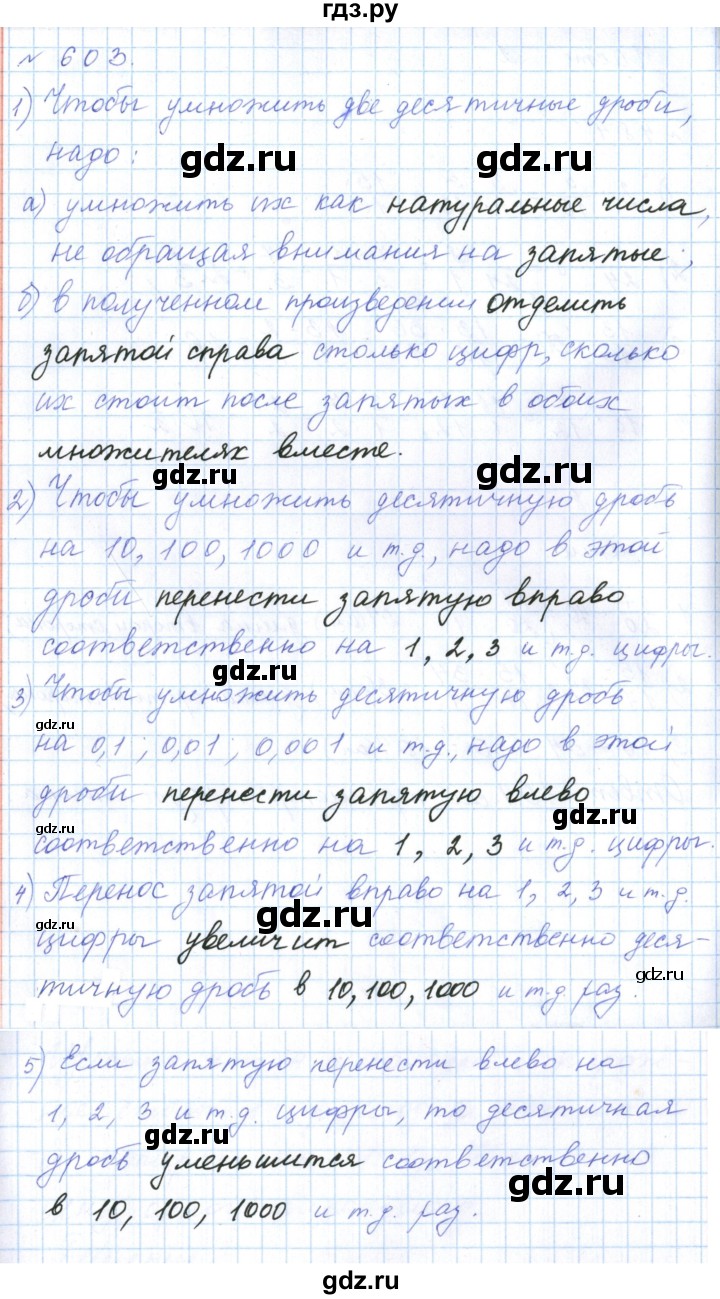 гдз.ру
№ 603.
1) Чтобы умножить две десятичные дроби,
надо:
gdz.ru gdz.ru
а) умножить их как натуральные числа,
не обращая внимания на запятые;
б) в полученном произведении отделить
запятой справа столько цифр, сколько
их стоит после запятых в обоих
множителях вместе.
gdz.ru gdz.ru
2) Чтобы умножить десятичную дробь
на 10, 100, 1000 и т.д., надо в этой
дроби перенести запятую вправо
соответственно на 1, 2, 3 и т.д. цифры.
3) Чтобы умножить десятичную дробь
gdz.ru
на 0,1; 0,01; 0,001 и т.д., надо в этой
дроби перенести запятую влево
gdz.ru gdz.ru
соответственно на 1, 2, 3 и т.д. цифры.
4) Перенос запятой вправо на 1, 2, 3 и т.д.
gdz.ru gdz.ru
цифры увеличит соответственно деся-
тичную дробь в 10, 100, 1000 и т.д. раз.
gdz.ru
5) Если запятую перенести влево на
1, 2, 3 и т.д. цифры, то десятичная
gdz.ru
дробь уменьшится соответственно
gdz.ru
в 10, 100, 1000 и т.д. раз.
gdz.ru